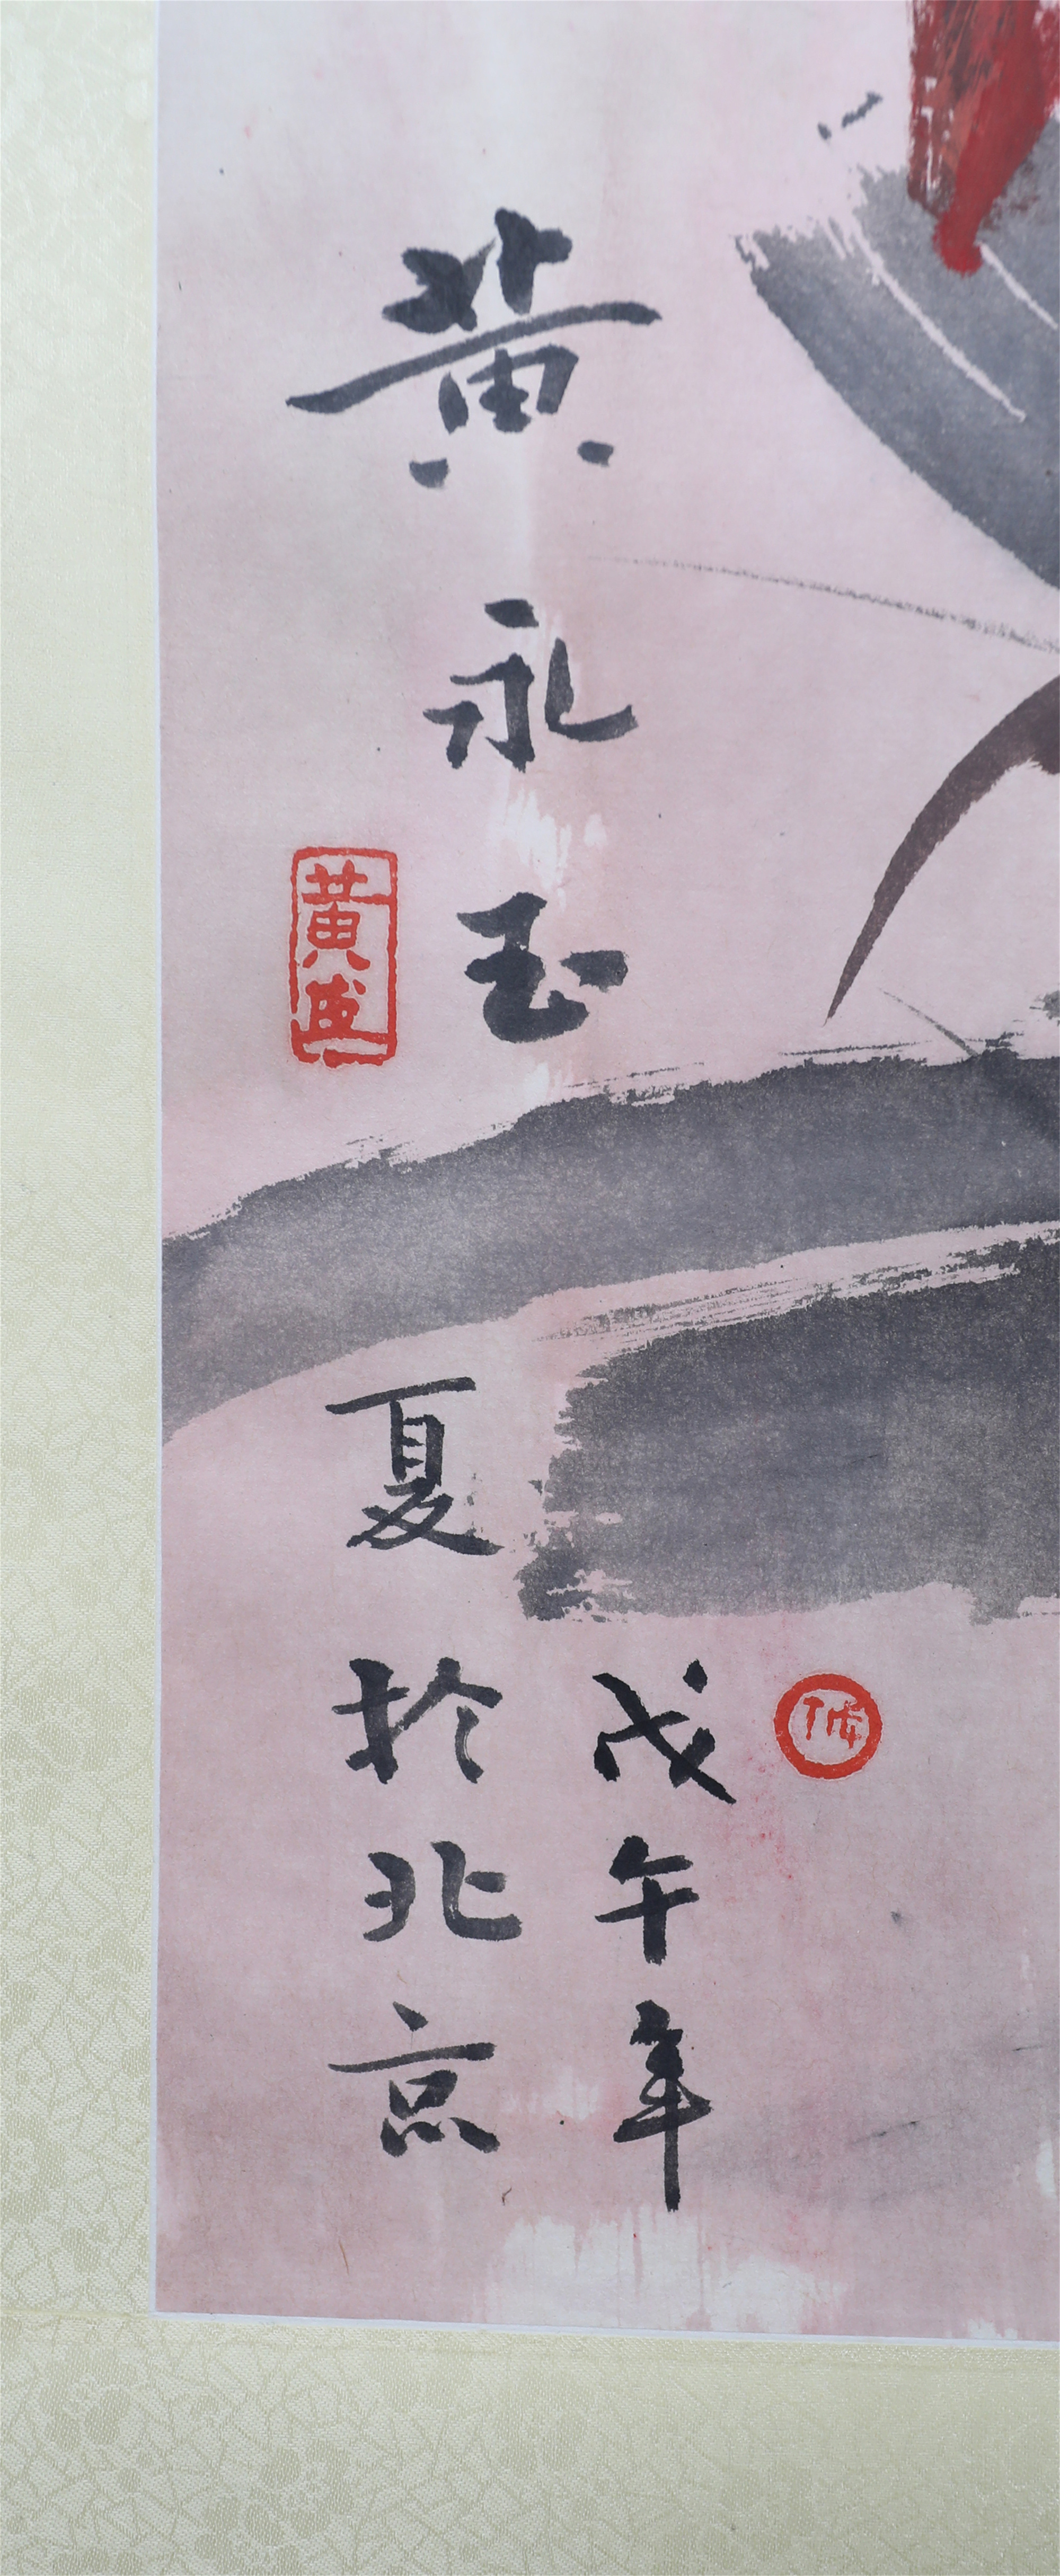 戊午年
夏於北京
黄永玉
黃